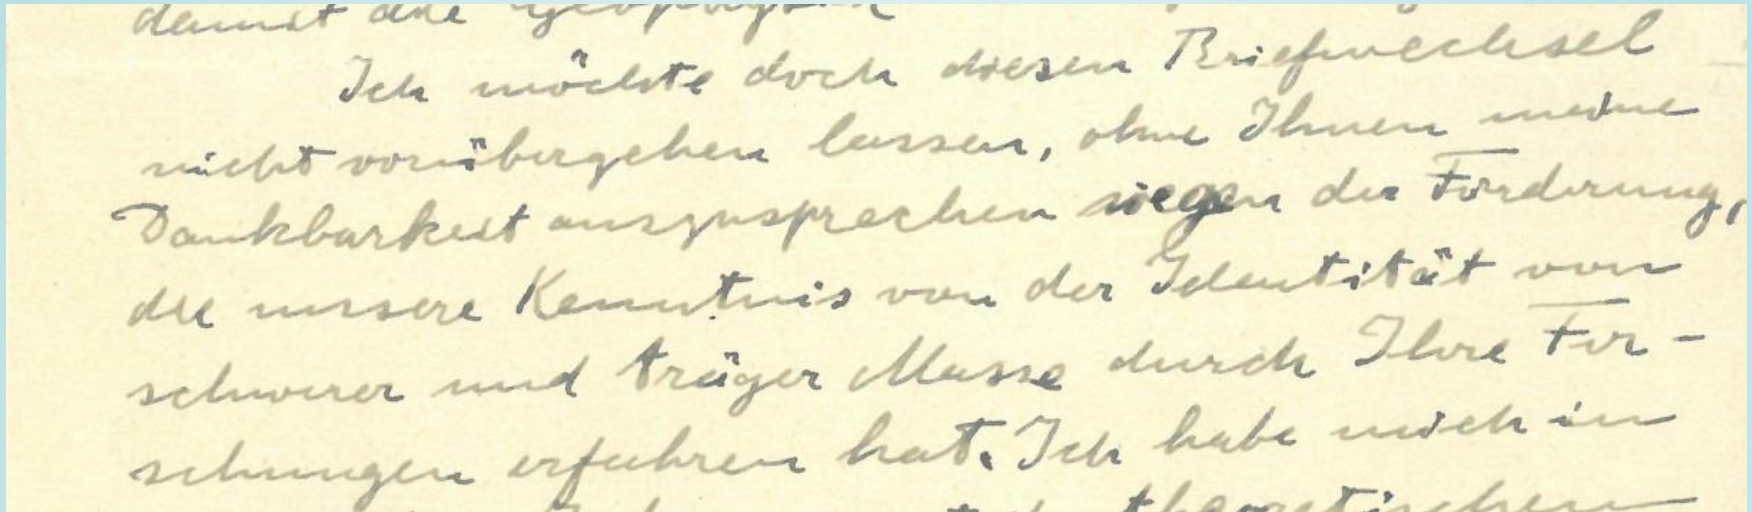 damit die Geophysik
Ich möchte doch diesen Briefwechsel
nicht vorübergehen lassen, ohne Ihnen meine
Dankbarkeit auszusprechen wegen der Förderung,
die unsere Kenntnis von der Identität von
schwerer und träger Masse durch Ihre For-
schungen erfahren hat. Ich habe mich in
theoretischen